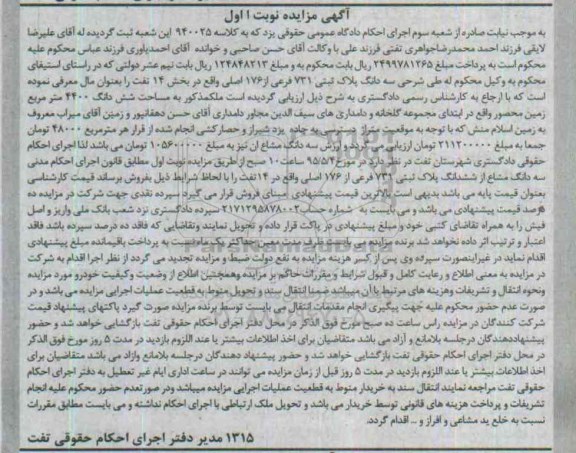 آگهی مزایده نوبت اول
به موجب نیابت صادره از شعبه سوم اجرای احکام دادگاه عمومی حقوقی یزد که به کلاسه ۹۴۰۰۲۵ این شعبه ثبت گردیده له آقای علیرضا
لایقی فرزند احمد محمدرضاجواهری تفتی فرزند علی با وکالت آقای حسن صاحبی و خوانده آقای احمدیاوری فرزند عباس محکوم علیه
محکوم است به پرداخت مبلغ ۲۴۹۹۷۸۱۲۶۵ ریال بابت محکوم به و مبلغ ۱۲۴۸۴۸۲۱۳ ریال بابت نیم عشر دولتی که در راستای استیفای
محکوم به وکیل محکوم له طی شرحی سه دانگ پلاک ثبتی ۷۳۱ فرعی از۱۷۶ اصلی واقع در بخش ۱۴ تفت را بعنوان مال معرفی نموده
است که با ارجاع به کارشناس رسمی دادگستری به شرح ذیل ارزیابی گردیده است ملکمذکور به مساحت شش دانگ ۴۴۰۰ متر مربع
زمین محصور واقع در ابتدای مجموعه گلخانه و دامداری های سیف الدین مجاور دامداری آقای حسن دهقانپور و زمین آقای میراب معروف
به زمین اسلام منش که با توجه به موقعیت متراژ دسترسی به جاده یزد شیراز و حصارکشی انجام شده از قرار هر مترمربع ۴۸۰۰۰ تومان
جمعا به مبلغ ۲۱۱۲۰۰۰۰۰ تومان ارزیابی می گردد و ارزش سه دانگ مشاع ان نیز به مبلغ ۱۰۵۶۰۰۰۰۰ تومان می باشد لذا اجرای احکام
حقوقی دادگستری شهرستان تفت در نظر دارد در مورخ ۹۵/۵/۴ ساعت ۱۰ صبح از طریق مزایده نوبت اول مطابق قانون اجرای احکام مدنی
سه دانگ مشاع از ششدانگ پلاک ثبتی ۷۳۱ فرعی از ۱۷۶ اصلی واقع در ۱۴تفت را با لحاظ شرایط ذیل بفروش برساند قیمت کارشناسی
بعنوان قیمت پایه می باشد بدیهی است بالاترین قیمت پیشنهادی مبنای فروش قرار می گیرد سپرده نقدی جهت شرکت در مزایده ده
درصد قیمت پیشنهادی می باشد و می بایست به شماره حساب ۲۱۷۱۲۹۵۸۷۸۰۰۲ سپرده دادگستری نزد شعب بانک ملی واریز و اصل
فیش را به همراه تقاضای کتبی خود و مبلغ پیشنهادی در پاکت قرار داده و تحویل نمایند وتقاضایی که فاقد ده درصد سپرده باشد فاقد
اعتبار و ترتیب اثر داده نخواهد شد برنده مزایده می بایست ظرف مدت معین حداکثر یک ماه نسبت به پرداخت باقیمانده مبلغ پیشنهادی
اقدام نماید در غیراینصورت سپرده وی پس از کسر هزینه مزایده به نفع دولت ضبط و مزایده تجدید می گردد از نظر اجرا اقدام به شرکت
در مزایده به معنی اطلاع و رعایت کامل و قبول شرایط و مقررات حاکم بر مزایده وهمچنین اطلاع از وضعیت وکیفیت خودرو مورد مزایده
ونحوه انتقال و تشریفات وهزینه های مرتبط با آن میباشد ضمنا انتقال سند و تحویل منوط به قطعیت عملیات اجرایی مزایده می باشد و در
صورت عدم حضور محکوم علیه جهت پیگیری انجام مقدمات انتقال می بایست توسط برنده مزایده صورت گیرد پاکتهای پیشنهاد قیمت
شرکت کنندگان در مزایده راس ساعت ده صبح مورخ فوق الذکر در محل دفتر اجرای احکام حقوقی تفت بازگشایی خواهد شد و حضور
پیشنهاددهندگان درجلسه بلامانع و آزاد می باشد متقاضیان برای اخذ اطلاعات بیشتر یا عند اللزوم بازدید در مدت ۵ روز مورخ فوق الذکر
در محل دفتر اجرای احکام حقوقی تفت بازگشایی خواهد شد و حضور پیشنهاد دهندگان درجلسه بلامانع وازاد می باشد متقاضیان برای
اخذ اطلاعات بیشتر یا عند اللزوم بازدید در مدت ۵ روز قبل از زمان مزایده می توانند در ساعت اداری ایام غیر تعطیل به دفتر اجرای احکام
حقوقی تفت مراجعه نمایند انتقال سند به خریدار منوط به قطعیت عملیات اجرایی مزایده میباشد ودر صورتعدم حضور محکوم علیه انجام
تشریفات و پرداخت هزینه های قانونی توسط خریدار می باشد و تحویل ملک ارتباطی با اجرای احکام نداشته و می بایست مطابق مقررات
نسبت به خلع ید مشاعی و افراز و ... اقدام گردد.
۱۳۱۵ مدیر دفتر اجرای احکام حقوقی تفت